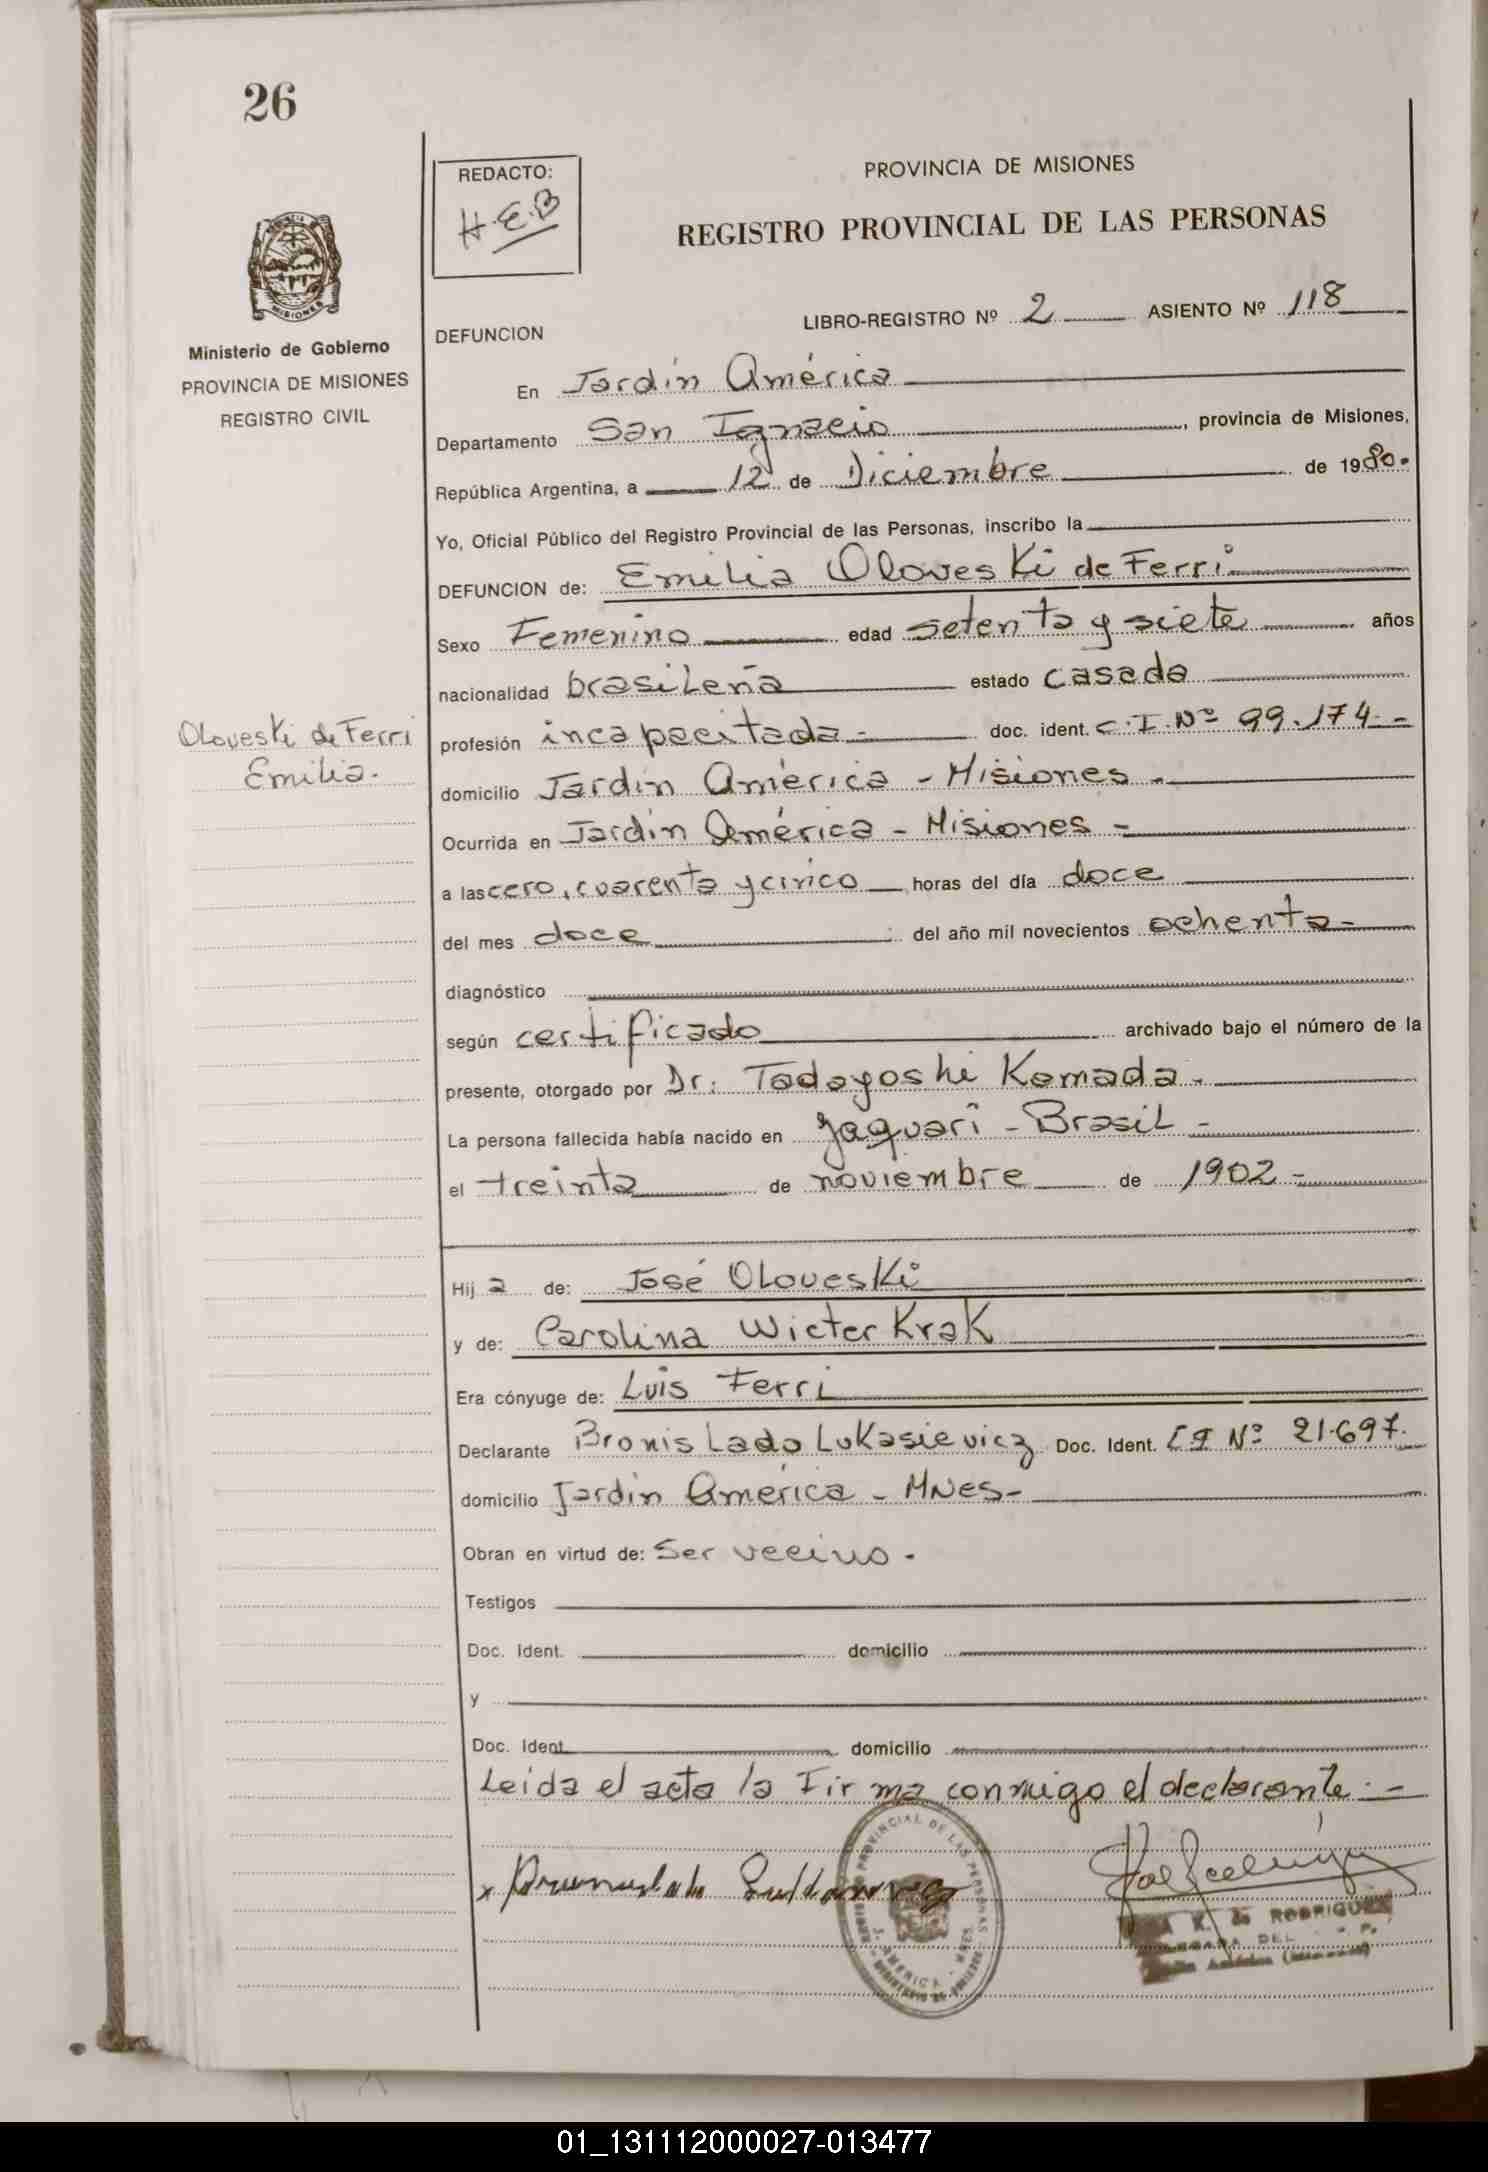 26
REDACTO:
H.E.B
PROVINCIA DE MISIONES
REGISTRO PROVINCIAL DE LAS PERSONAS
MISIONES
Ministerio de Gobierno
PROVINCIA DE MISIONES
REGISTRO CIVIL
DEFUNCION
LIBRO-REGISTRO Nº 2 ASIENTO Nº 118
En Jardín América
Departamento San Ignacio, provincia de Misiones,
República Argentina, a 12 de Diciembre de 1980.
Yo, Oficial Público del Registro Provincial de las Personas, inscribo la
DEFUNCION de: Emilia Oloveski de Ferri
Sexo Femenino edad setenta y siete años
nacionalidad brasileña estado casada
Oloveski de Ferri
Emilia.
profesión incapacitada- doc. ident. C.I.Nº 99.174.-
domicilio Jardín América - Misiones -
Ocurrida en Jardín América - Misiones -
a las cero, cuarenta y cinco horas del día doce
del mes doce del año mil novecientos ochenta-
diagnóstico
según certificado archivado bajo el número de la
presente, otorgado por Dr: Tadayoshi Kamada.
La persona fallecida había nacido en Jaquari - Brasil -
el treinta de noviembre de 1902-
Hija de: José Oloveski
y de: Carolina Wieter Krak
Era cónyuge de: Luis Ferri
Declarante Bronislado Lukasievicz Doc. Ident. C I Nº 21.697.
domicilio Jardín América - MNes-
Obran en virtud de: Ser vecino.
Testigos
Doc. Ident. domicilio
y
Doc. Ident. domicilio
Leída el acta la Firma conmigo el declarante.-
K. de RODRIGUEZ
01_131112000027-013477